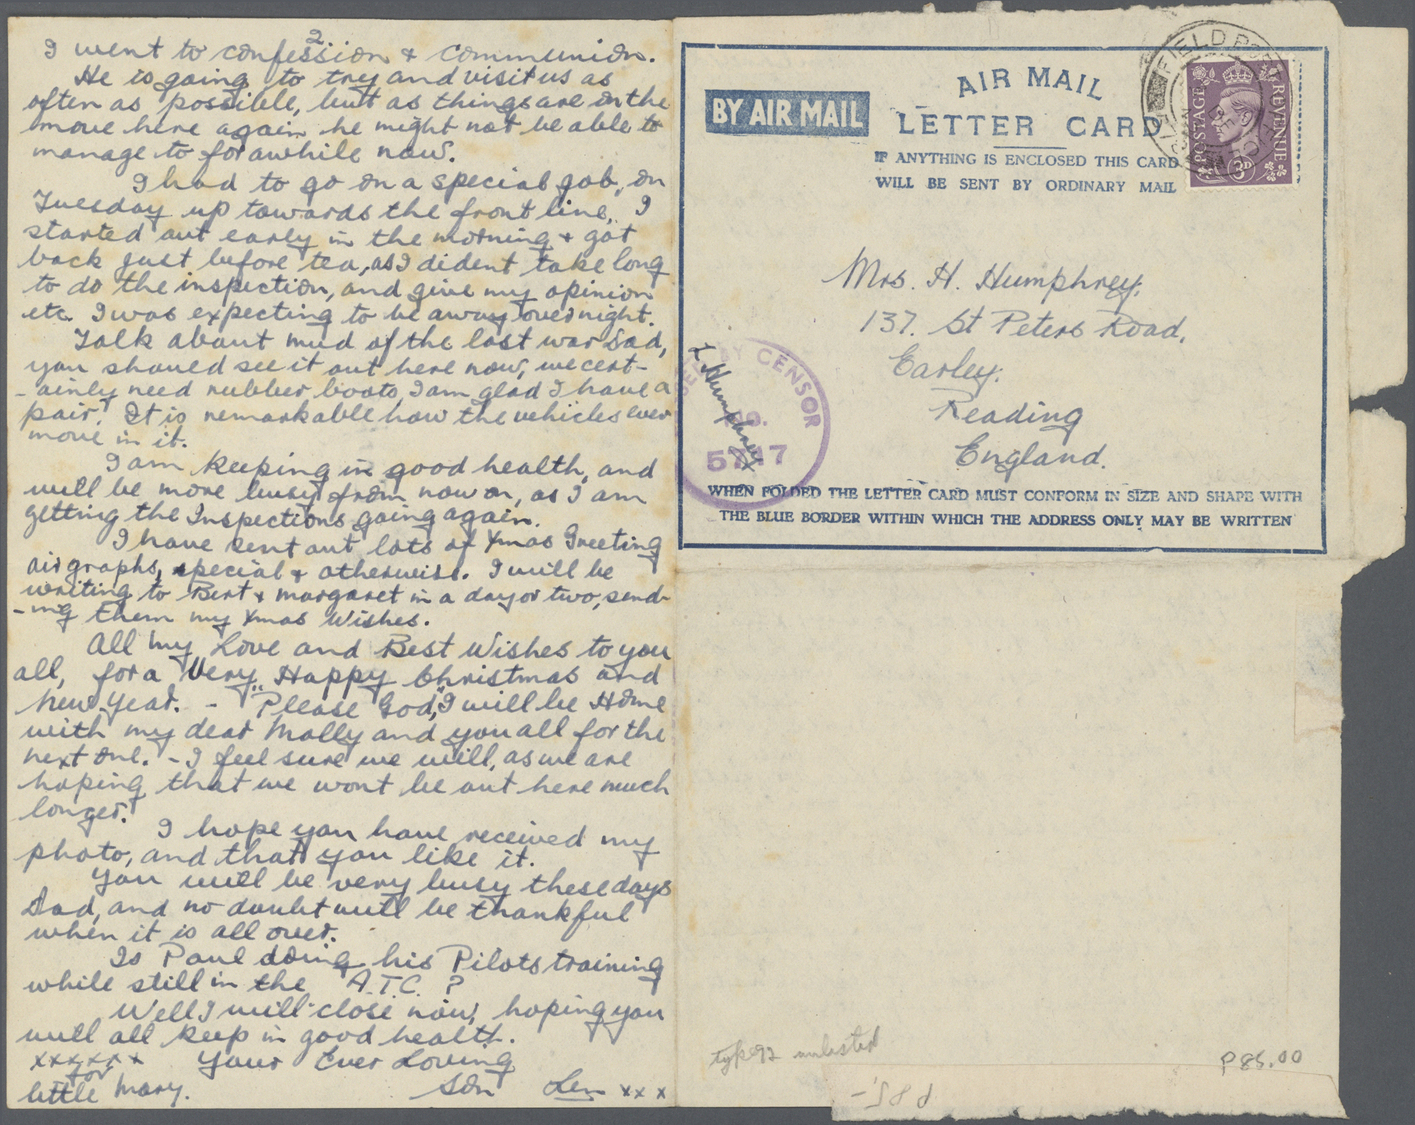 2
I went to confession & communion.
He is going to try and visit us as
often as possible, but as things are on the
move here again he might not be able to
manage to for awhile now.
I had to go on a special job, on
Tuesday up towards the front line, I
started out early in the morning & got
back just before tea, as I dident take long
to do the inspection, and give my opinion
etc. I was expecting to be away overnight.
Talk about mud of the last war Dad,
you should see it out here now, we cert-
-ainly need rubber boots, I am glad I have a
pair! It is remarkable how the vehicles ever
move in it.
I am keeping in good health, and
will be more busy from now on, as I am
getting the Inspections going again.
I have sent out lots of Xmas Greeting
airgraphs, special & otherwise. I will be
writing to Bert & Margaret in a day or two, send-
-ing them my Xmas Wishes.
All my Love and Best Wishes to you
all, for a Very Happy Christmas and
New Year. - "Please God," I will be Home
with my dear Molly and you all for the
next one. - I feel sure we will, as we are
hoping that we wont be out here much
longer!
I hope you have received my
photo, and that you like it.
You will be very busy these days
Dad, and no doubt will be thankful
when it is all over.
Is Paul doing his Pilots training
while still in the A.T.C.?
Well I will close now, hoping you
will all keep in good health.
xxxxxx Your Ever Loving
for
little Mary. Son Len xxx
BY AIR MAIL
AIR MAIL
LETTER CARD
IF ANYTHING IS ENCLOSED THIS CARD
WILL BE SENT BY ORDINARY MAIL
FIELD POST
POSTAGE REVENUE
3D
Mrs. H. Humphrey,
137. St Peters Road,
Earley.
Reading
England.
BY CENSOR
NO.
57 7
L Humphrey
WHEN FOLDED THE LETTER CARD MUST CONFORM IN SIZE AND SHAPE WITH
THE BLUE BORDER WITHIN WHICH THE ADDRESS ONLY MAY BE WRITTEN
type 92 unlisted
P85.00
P85-